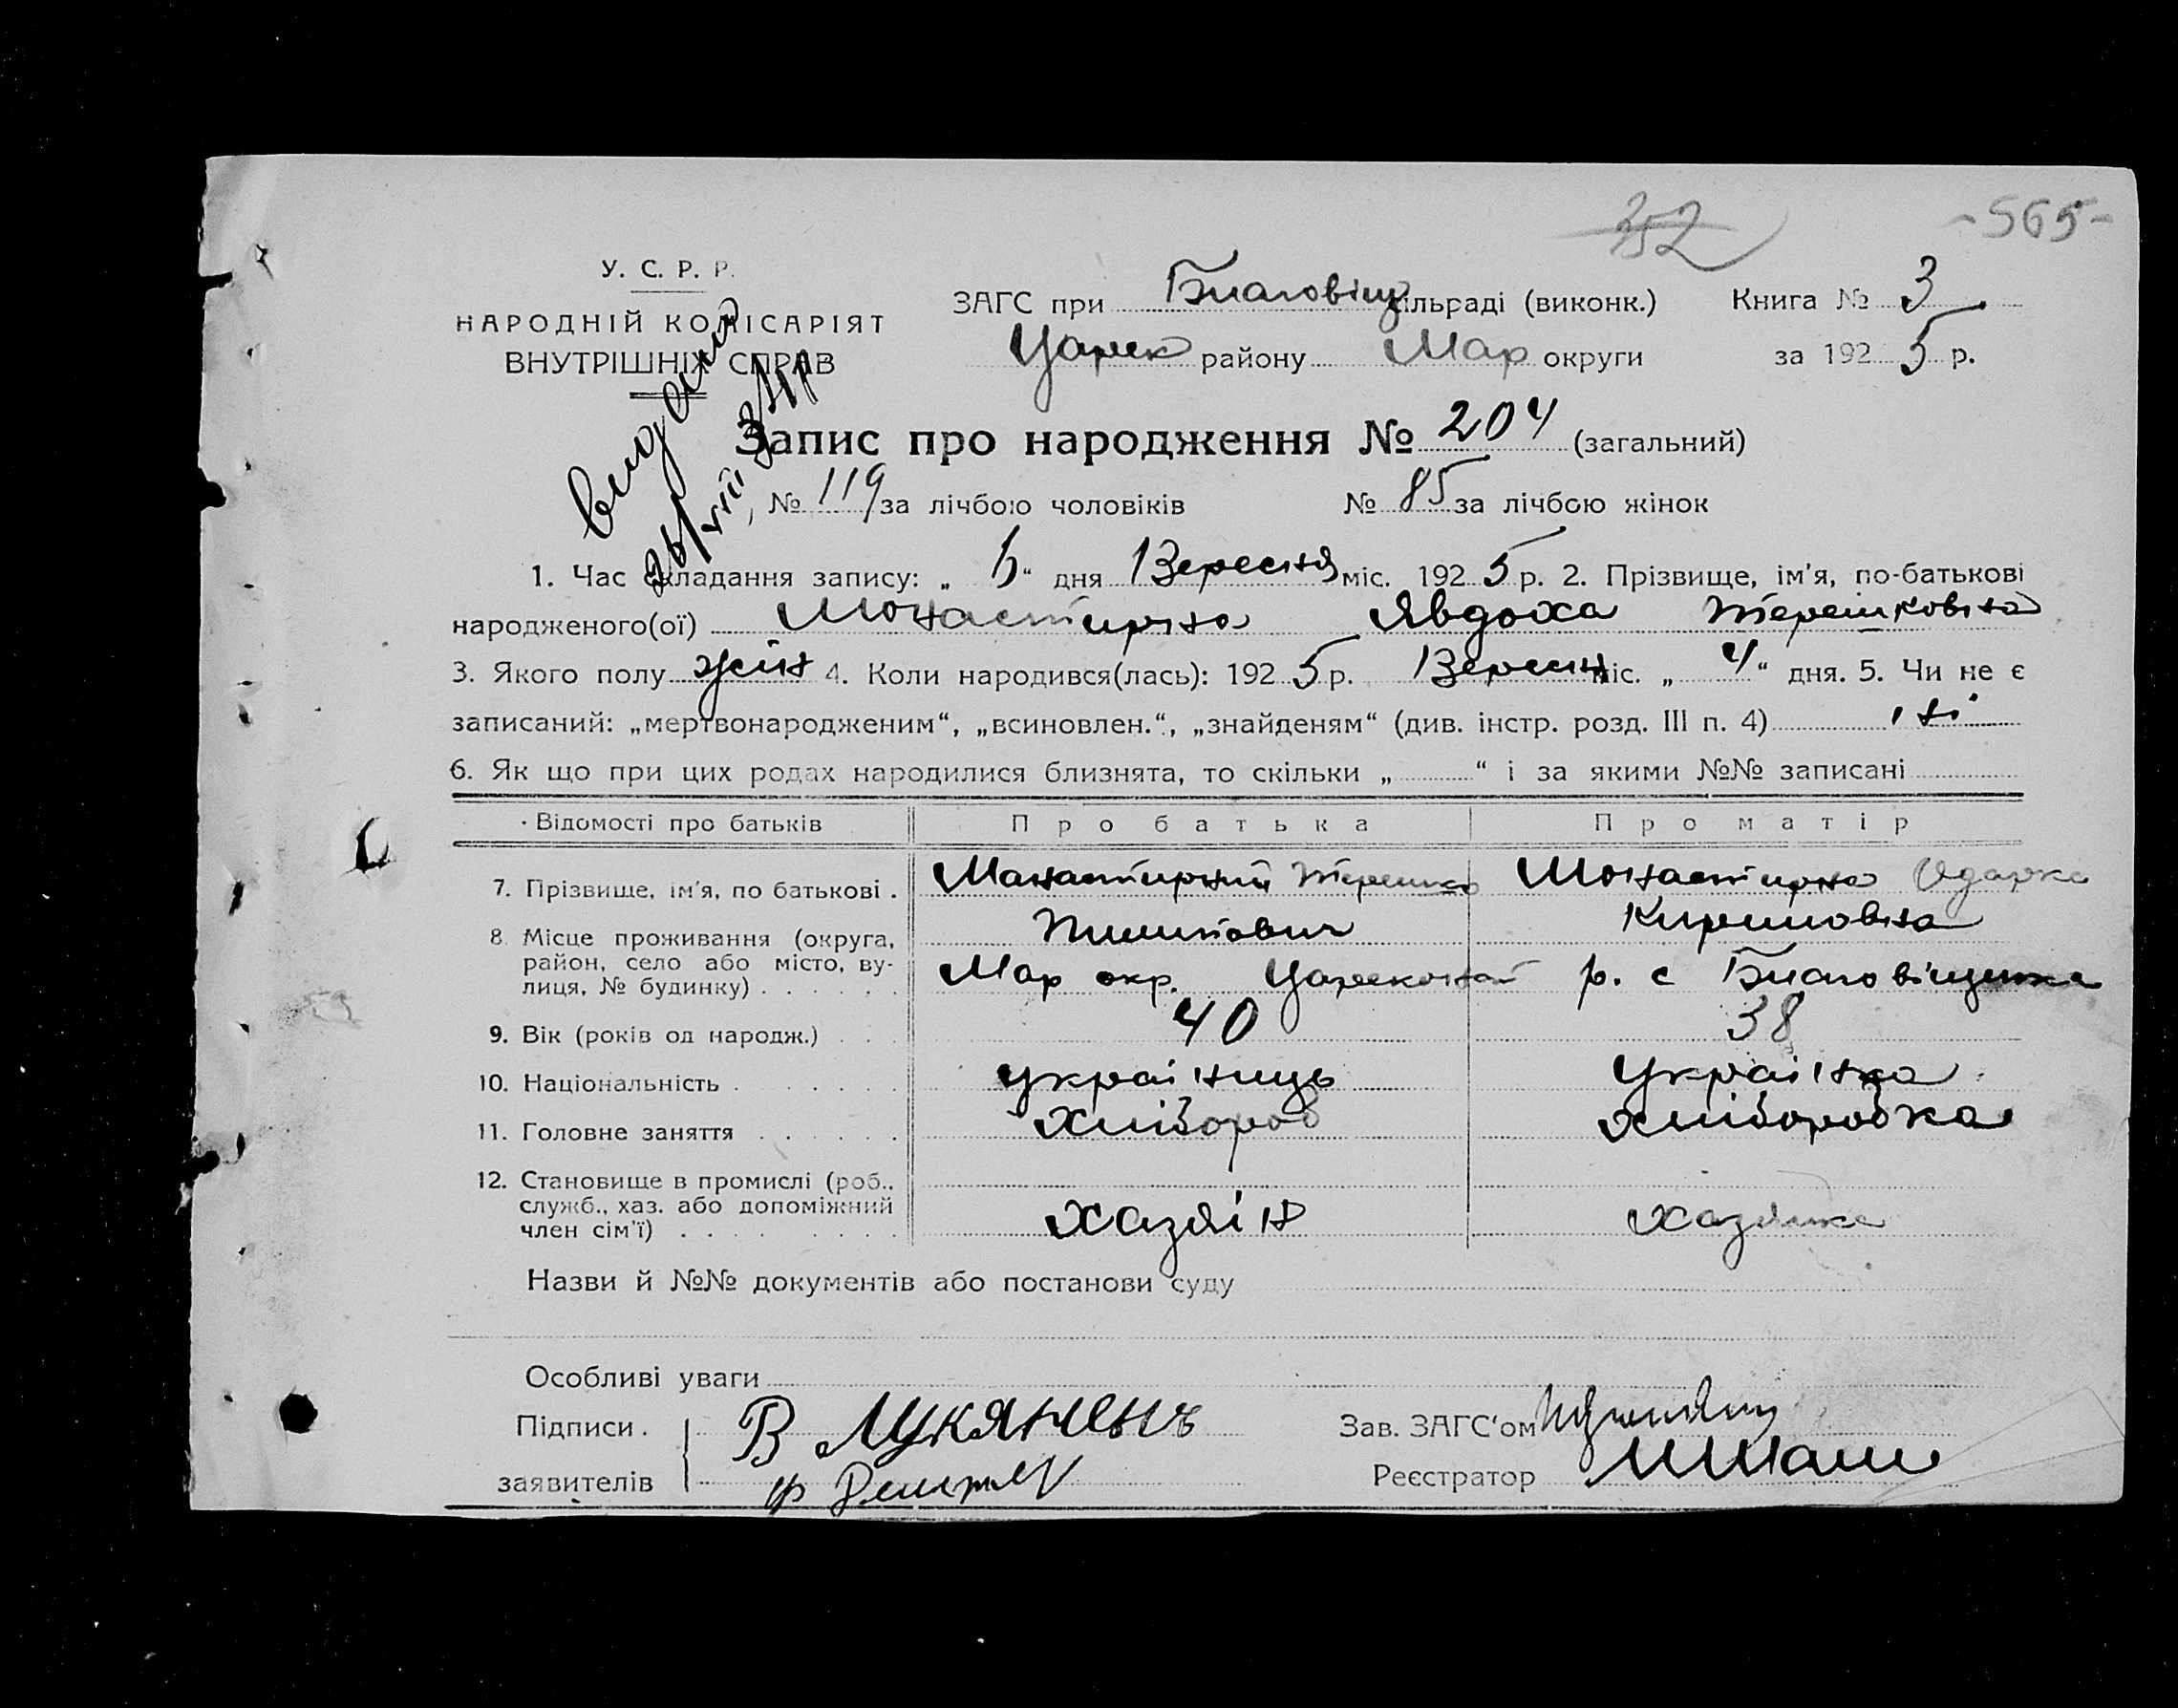 352
-565-
У. С. Р. Р.
НАРОДНІЙ КОМІСАРІЯТ
ВНУТРІШНІХ СПРАВ
ЗАГС при Благовіщ сільраді (виконк.) Книга № 3
Царек району Мар округи за 1925 р.
Запис про народження № 204 (загальний)
№ 119 за лічбою чоловіків № 85 за лічбою жінок
1. Час складання запису: „ 6 “ дня Вересня міс. 1925 р. 2. Прізвище, ім'я, по-батькові
народженого(ої) Монастирна Явдоха Терешковна
3. Якого полу жін 4. Коли народився(лась): 1925 р. Вересн міс. „ 4 “ дня. 5. Чи не є
записаний: „мертвонародженим“, „всиновлен.“, „знайденям“ (див. інстр. розд. III п. 4) ні
6. Як що при цих родах народилися близнята, то скільки „ “ і за якими №№ записані
Відомості про батьків Про батька Про матір
7. Прізвище, ім'я, по батькові . Манастирний Терешко Монастирна Одарка
Пилипович Кириловна
8. Місце проживання (округа,
район, село або місто, ву-
лиця, № будинку) . . . . . . Мар окр. Царекон р. с Благовіщенка
9. Вік (років од народж.) . . . 40 38
10. Національність . . . . . . українць Українка
11. Головне заняття . . . . . . Хлібороб хліборобка
12. Становище в промислі (роб.,
служб., хаз. або допоміжний
член сім'ї) . . . . . . . . . хазяїн хазяйка
Назви й №№ документів або постанови суду
Особливі уваги
Підписи . В Лукянченъ Зав. ЗАГС'ом
заявителів Реєстратор
видано